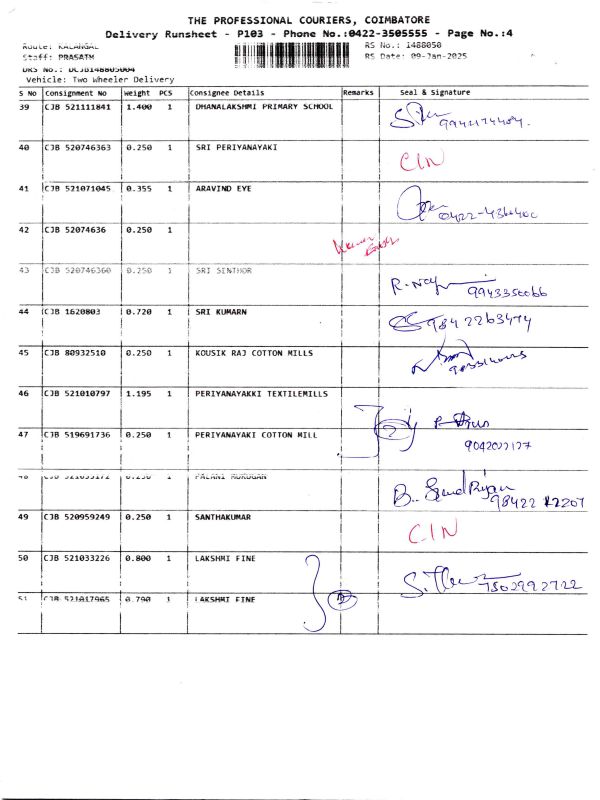 THE PROFESSIONAL COURIERS, COIMBATORE
Delivery Runsheet - P103 - Phone No.:0422-3505555 - Page No.:4
Route: KALANGAL
RS No.: 1488050
Staff: PRASATH
RS Date: 09-Jan-2025
DRS No.: DCJB148805004
Vehicle: Two Wheeler Delivery
S No Consignment No Weight PCS Consignee Details Remarks Seal & Signature
39 CJB 521111841 1.400 1 DHANALAKSHMI PRIMARY SCHOOL
40 CJB 520746363 0.250 1 SRI PERIYANAYAKI CIN
41 CJB 521071045 0.355 1 ARAVIND EYE
42 CJB 52074636 0.250 1
43 CJB 520746360 0.250 1 SRI SINTHOR
9943350066
44 CJB 1620803 0.720 1 SRI KUMARN 98422263474
45 CJB 80932510 0.250 1 KOUSIK RAJ COTTON MILLS
46 CJB 521010797 1.195 1 PERIYANAYAKKI TEXTILEMILLS
2
47 CJB 519691736 0.250 1 PERIYANAYAKI COTTON MILL
9042022127
48 CJB 521033172 0.250 1 PALANI MURUGAN
49 CJB 520959249 0.250 1 SANTHAKUMAR C.IN
50 CJB 521033226 0.800 1 LAKSHMI FINE
7502992722
51 CJB 521017965 0.790 1 LAKSHMI FINE 2